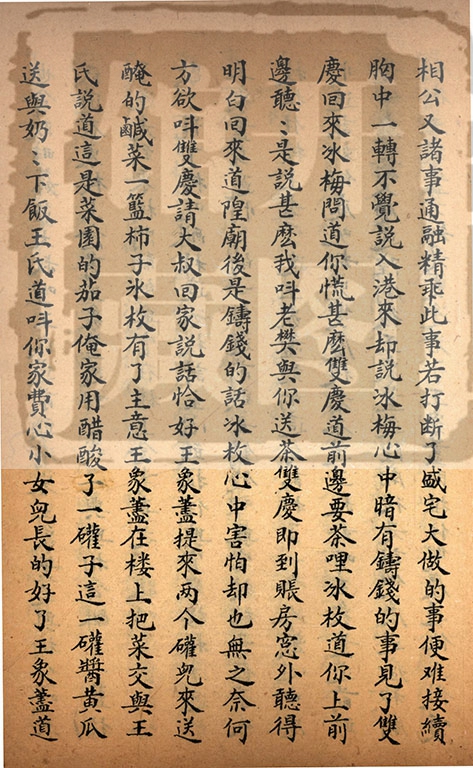 相公又諸事通融精乖此事若打断了盛宅大做的事便难接續
胸中一轉不覺說入港來却說氷梅心中暗有鑄錢的事見了雙
慶回來氷梅問道你慌甚麽雙慶道前邊要茶哩氷枚道你上前
邊聽〻是說甚麽我呌老樊與你送茶雙慶即到賬房窓外聽得
明白回來道隍廟後是鑄錢的話氷枚心中害怕却也無之奈何
方欲呌雙慶請大叔回家説話恰好王象藎提來两个礶兒來送
醃的鹹菜一籃柿子氷枚有了主意王象藎在楼上把菜交與王
氏説道這是菜園的茄子俺家用醋酸了一礶子這一礶醬黄瓜
送與奶〻下飯王氏道呌你家費心小女兒長的好了王象藎道